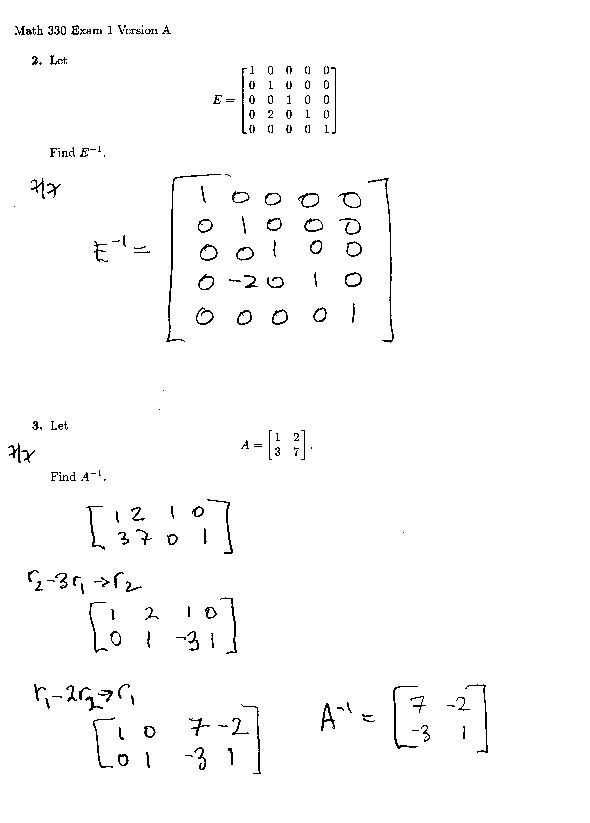 Math 330 Exam 1 Version A
2. Let
E = [1 0 0 0 0
0 1 0 0 0
0 0 1 0 0
0 2 0 1 0
0 0 0 0 1]
Find E⁻¹.
7/7
E⁻¹ = [1 0 0 0 0
0 1 0 0 0
0 0 1 0 0
0 -2 0 1 0
0 0 0 0 1]
3. Let
7/7
A = [1 2
3 7].
Find A⁻¹.
[1 2 1 0
3 7 0 1]
r₂-3r₁→r₂
[1 2 1 0
0 1 -3 1]
r₁-2r₂→r₁
[1 0 7 -2
0 1 -3 1]
A⁻¹ = [7 -2
-3 1]